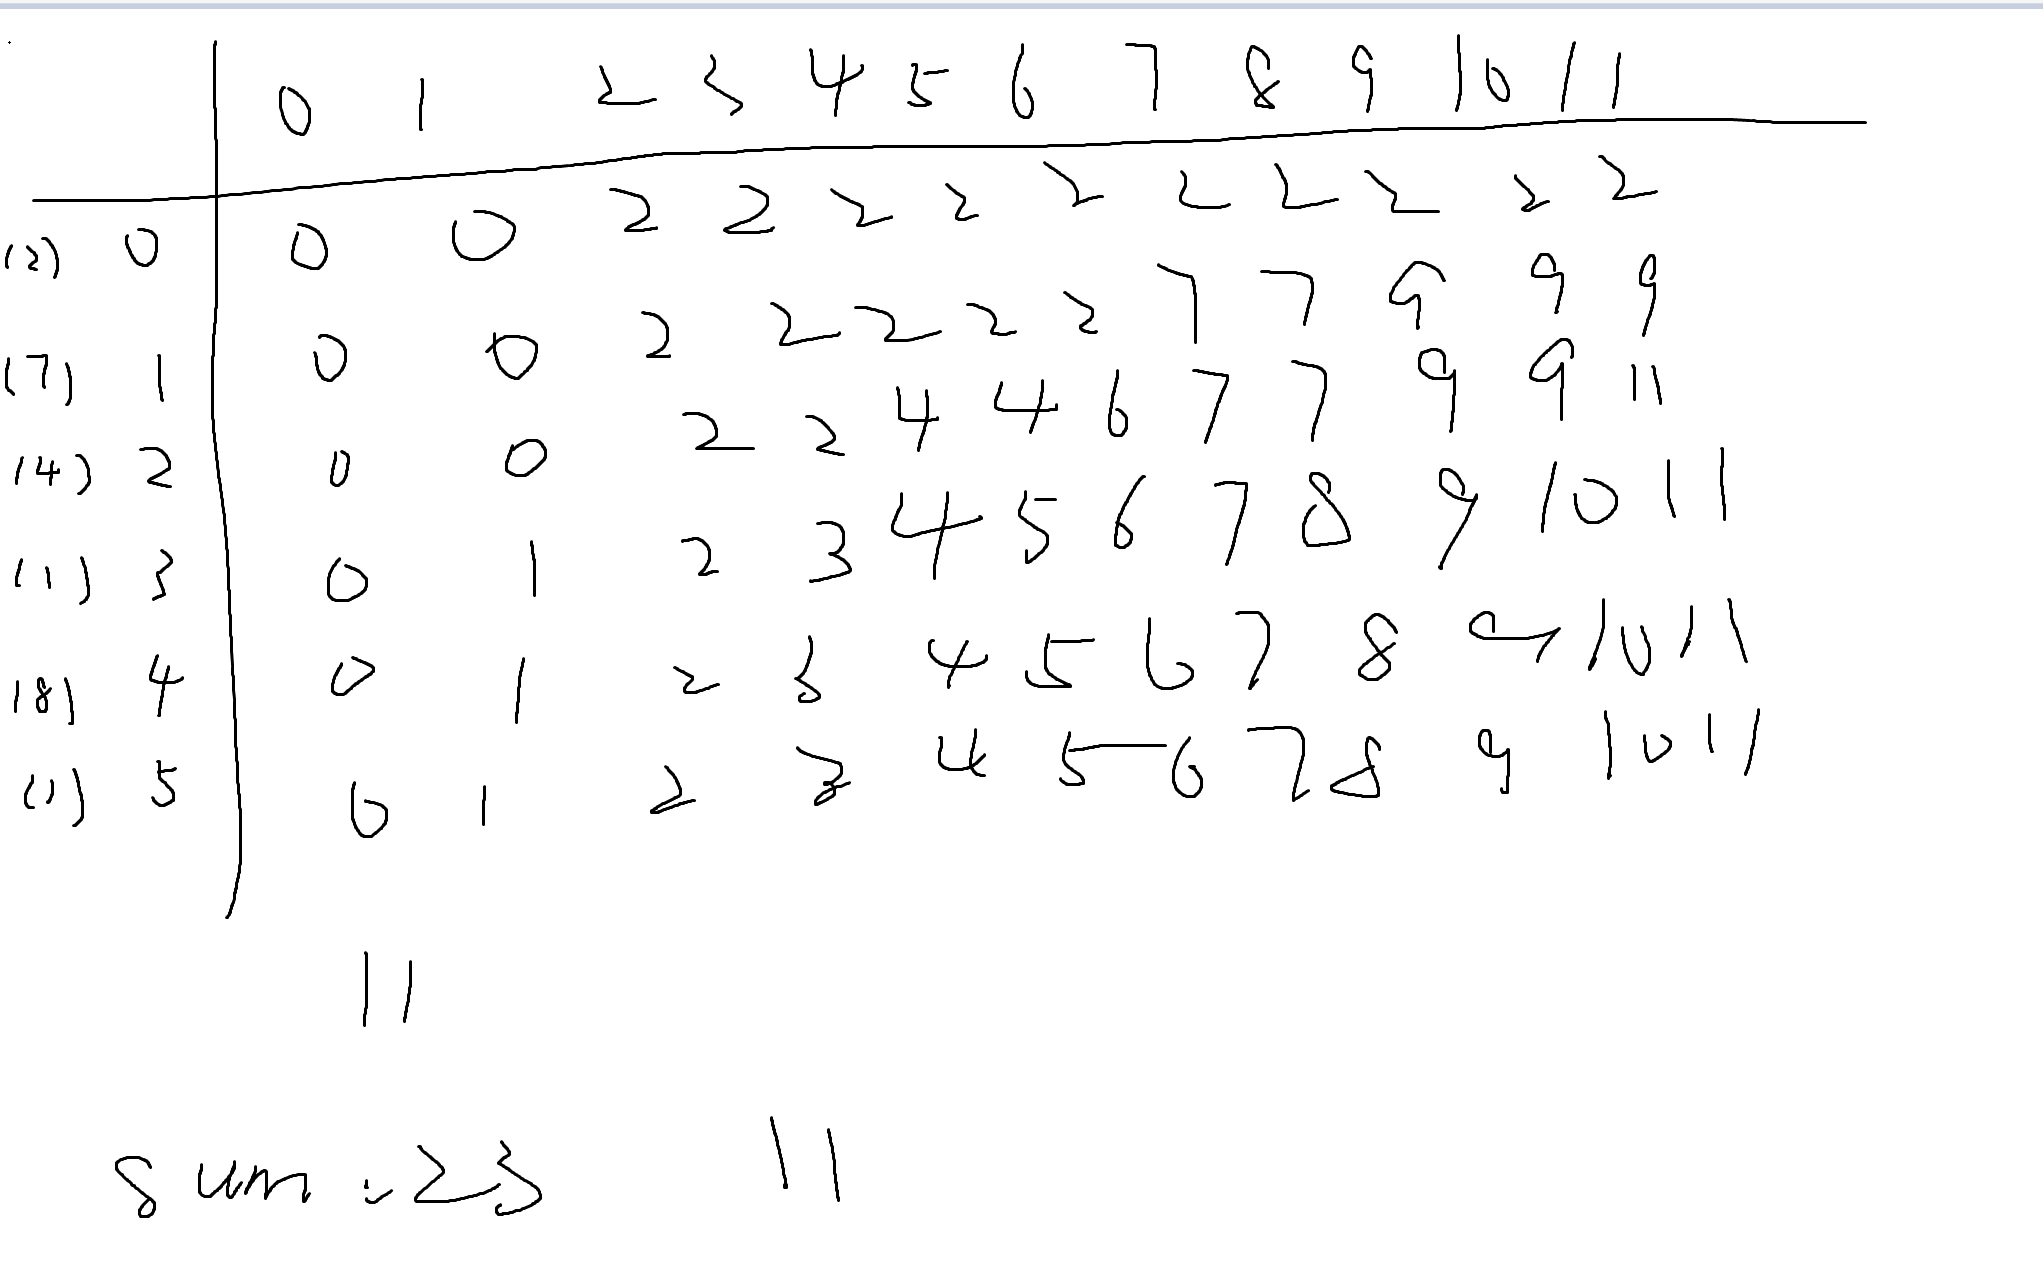 0 1 2 3 4 5 6 7 8 9 10 11
(2) 0 0 0 2 2 2 2 2 2 2 2 2 2
(7) 1 0 0 2 2 2 2 2 7 7 9 9 9
(4) 2 0 0 2 2 4 4 6 7 7 9 9 11
(1) 3 0 1 2 3 4 5 6 7 8 9 10 11
(8) 4 0 1 2 3 4 5 6 7 8 9 10 11
(1) 5 0 1 2 3 4 5 6 7 8 9 10 11
11
sum : 23 11